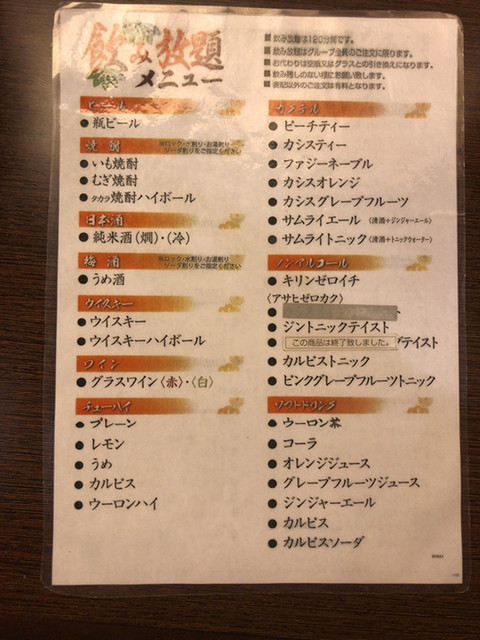 飲み放題
メニュー
■飲み放題は120分制です。
■飲み放題はグループ全員のご注文に限ります。
■お代わりは空瓶又はグラスとの引き換えになります。
■飲み残しのない様にお願い致します。
■表記以外のご注文は有料となります。
ビール
●瓶ビール
焼酎
※ロック・水割り・お湯割り
ソーダ割りをご指定ください
●いも焼酎
●むぎ焼酎
●タカラ焼酎ハイボール
日本酒
●純米酒(燗)・(冷)
梅酒
※ロック・水割り・お湯割り
ソーダ割りをご指定ください
●うめ酒
ウイスキー
●ウイスキー
●ウイスキーハイボール
ワイン
●グラスワイン〈赤〉・〈白〉
チューハイ
●プレーン
●レモン
●うめ
●カルピス
●ウーロンハイ
カクテル
●ピーチティー
●カシスティー
●ファジーネーブル
●カシスオレンジ
●カシスグレープフルーツ
●サムライエール〈清酒+ジンジャーエール〉
●サムライトニック〈清酒+トニックウォーター〉
ノンアルコール
●キリンゼロイチ
〈アサヒゼロカク〉
●
●ジントニックテイスト
●この商品は終了致しました。テイスト
●カルピストニック
●ピンクグレープフルーツトニック
ソフトドリンク
●ウーロン茶
●コーラ
●オレンジジュース
●グレープフルーツジュース
●ジンジャーエール
●カルピス
●カルピスソーダ